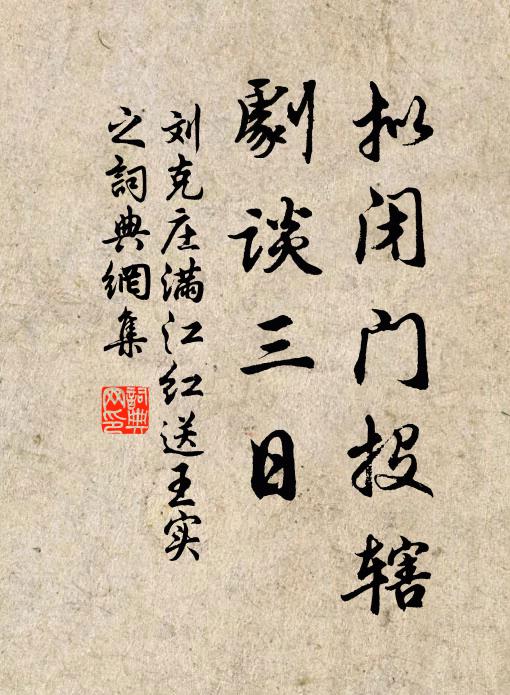 拟闭门投辖
劇谈三日
刘克庄满江红送王实
之詞典網集
詞典
网印